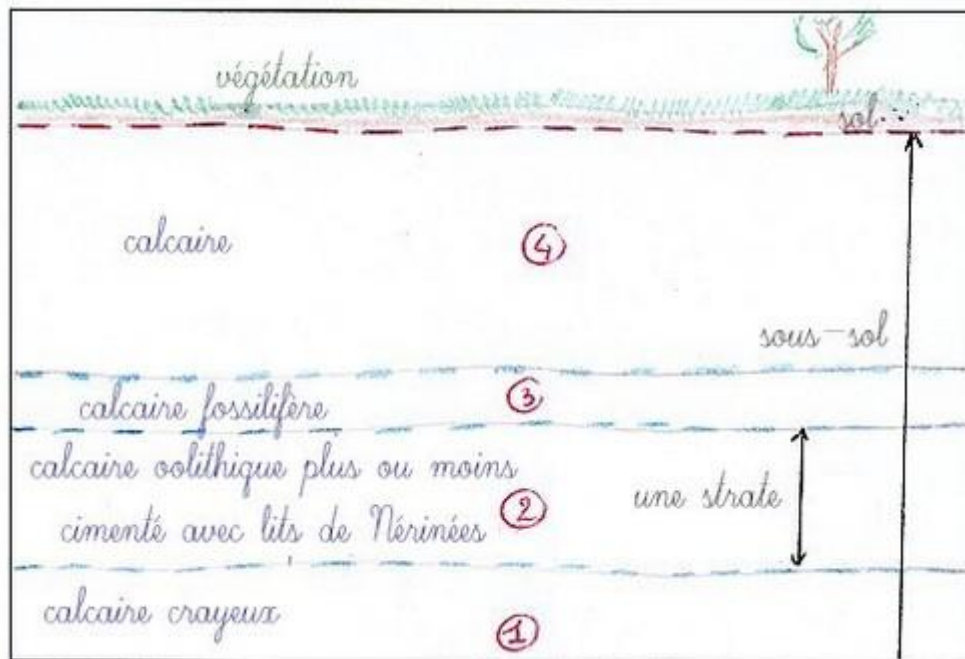 végétation
sol
calcaire
4
sous-sol
calcaire fossilifère
3
calcaire oolithique plus ou moins
cimenté avec lits de Nérinées
2
une strate
calcaire crayeux
1